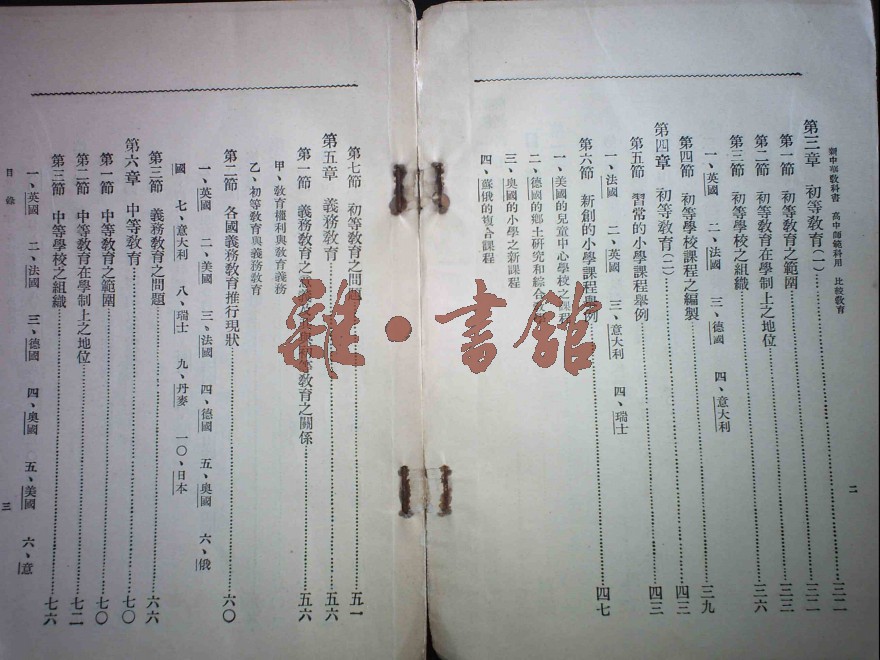 新中華教科書 高中師範科用 比較教育
二
第三章 初等教育(一)……三二
第一節 初等教育之範圍……三三
第二節 初等教育在學制上之地位……三六
第三節 初等學校之組織……三九
一、英國 二、法國 三、德國 四、意大利
第四節 初等學校課程之編製……四三
第四章 初等教育(二)……四三
第五節 習常的小學課程舉例……四七
一、法國 二、英國 三、意大利 四、瑞士
第六節 新創的小學課程舉例
一、美國的兒童中心學校之課程
二、德國的鄉土研究和綜合
三、奧國的小學之新課程
四、蘇俄的複合課程
第七節 初等教育之問題……五一
第五章 義務教育……五六
第一節 義務教育之 等教育之關係……五六
甲、教育權利與教育義務
乙、初等教育與義務教育
第二節 各國義務教育推行現狀……六〇
一、英國 二、美國 三、法國 四、德國 五、奧國 六、俄
國 七、意大利 八、瑞士 九、丹麥 一〇、日本
第三節 義務教育之問題……六六
第六章 中等教育……七〇
第一節 中等教育之範圍……七〇
第二節 中等教育在學制上之地位……七二
第三節 中等學校之組織……七六
一、英國 二、法國 三、德國 四、奧國 五、美國 六、意
目錄
三
雜·書館